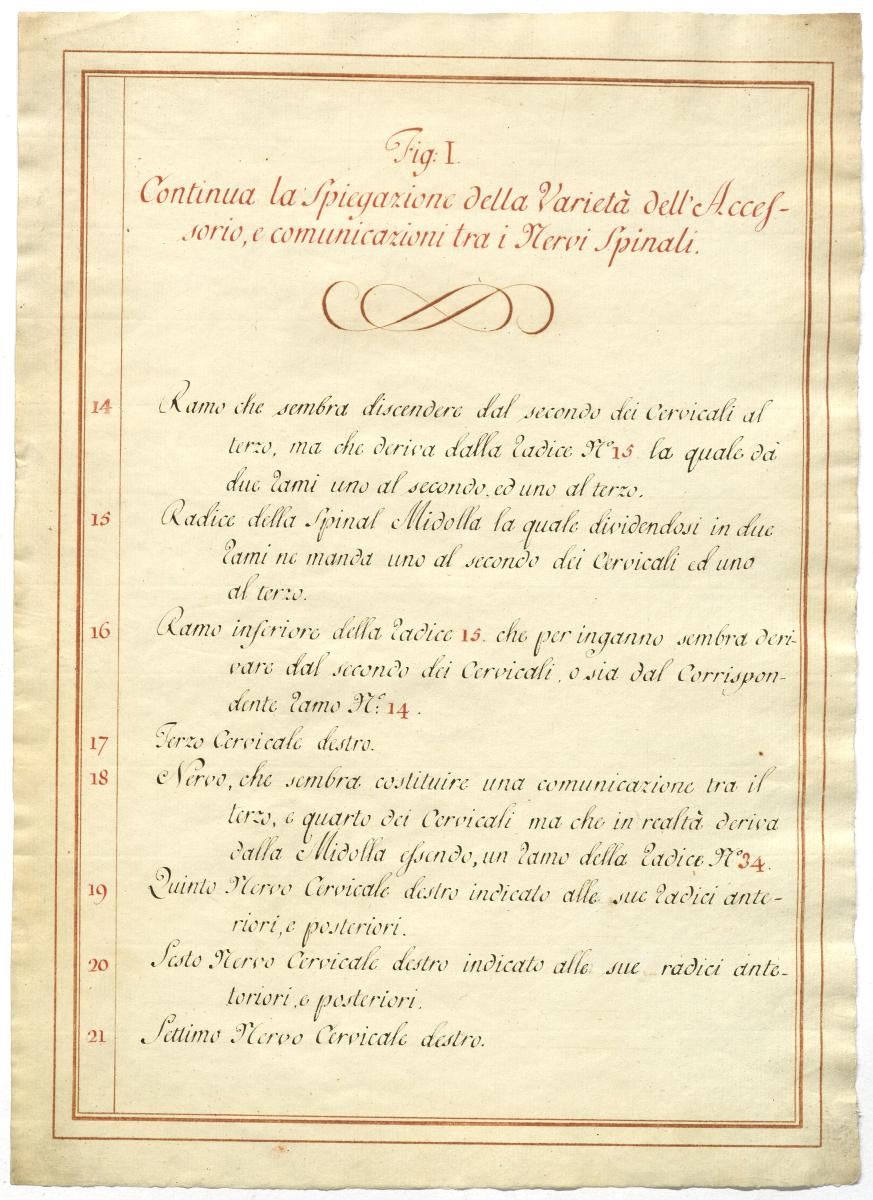 Fig: I.
Continua la Spiegazione della Varietà dell'Acces-
sorio, e comunicazioni tra i Nervi Spinali.
14 Ramo che sembra discendere dal secondo dei Cervicali al
terzo, ma che deriva dalla Radice Nº 15 la quale dà
due Rami uno al secondo, ed uno al terzo.
15 Radice della Spinal Midolla la quale dividendosi in due
Rami ne manda uno al secondo dei Cervicali ed uno
al terzo.
16 Ramo inferiore della Radice 15. che per inganno sembra deri-
vare dal secondo dei Cervicali, o sia dal Corrispon-
dente Ramo Nº: 14.
17 Terzo Cervicale destro.
18 Nervo, che sembra costituire una comunicazione tra il
terzo, e quarto dei Cervicali ma che in realtà deriva
dalla Midolla essendo, un Ramo della Radice Nº 34.
19 Quinto Nervo Cervicale destro indicato alle sue Radici ante-
riori, e posteriori.
20 Sesto Nervo Cervicale destro indicato alle sue radici ante-
toriori, e posteriori.
21 Settimo Nervo Cervicale destro.